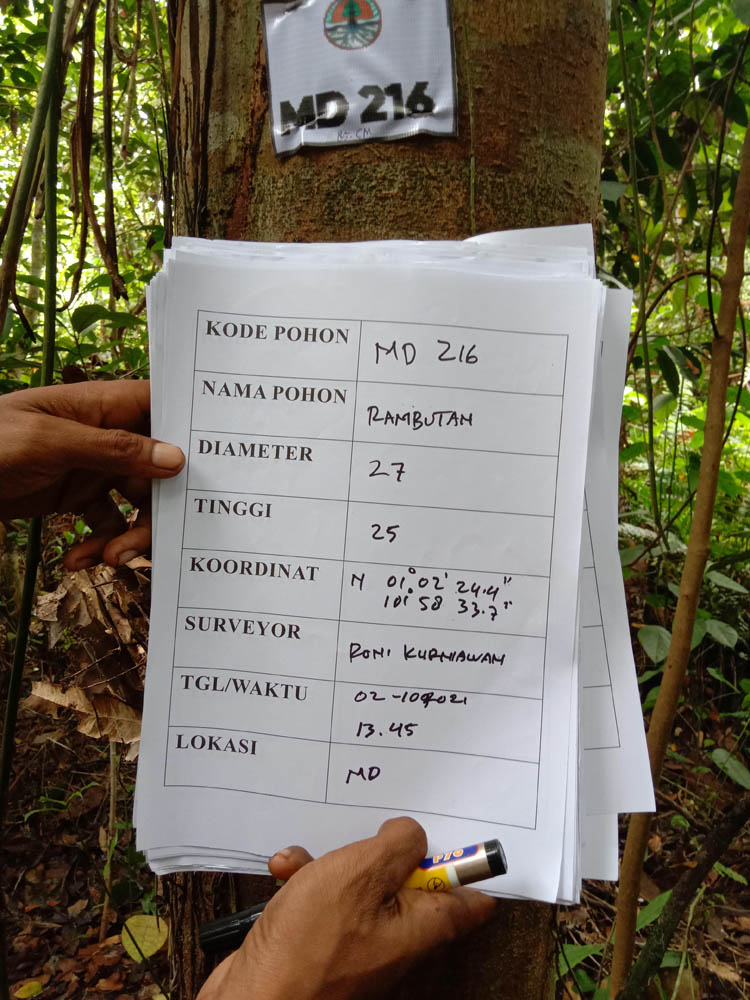 MD 216
KODE POHON
MD 216
NAMA POHON
RAMBUTAN
DIAMETER
27
TINGGI
25
KOORDINAT
N 01° 02' 24.4"
101° 58 33.7"
SURVEYOR
RONI KURNIAWAN
TGL/WAKTU
02-10-2021
13.45
LOKASI
MD